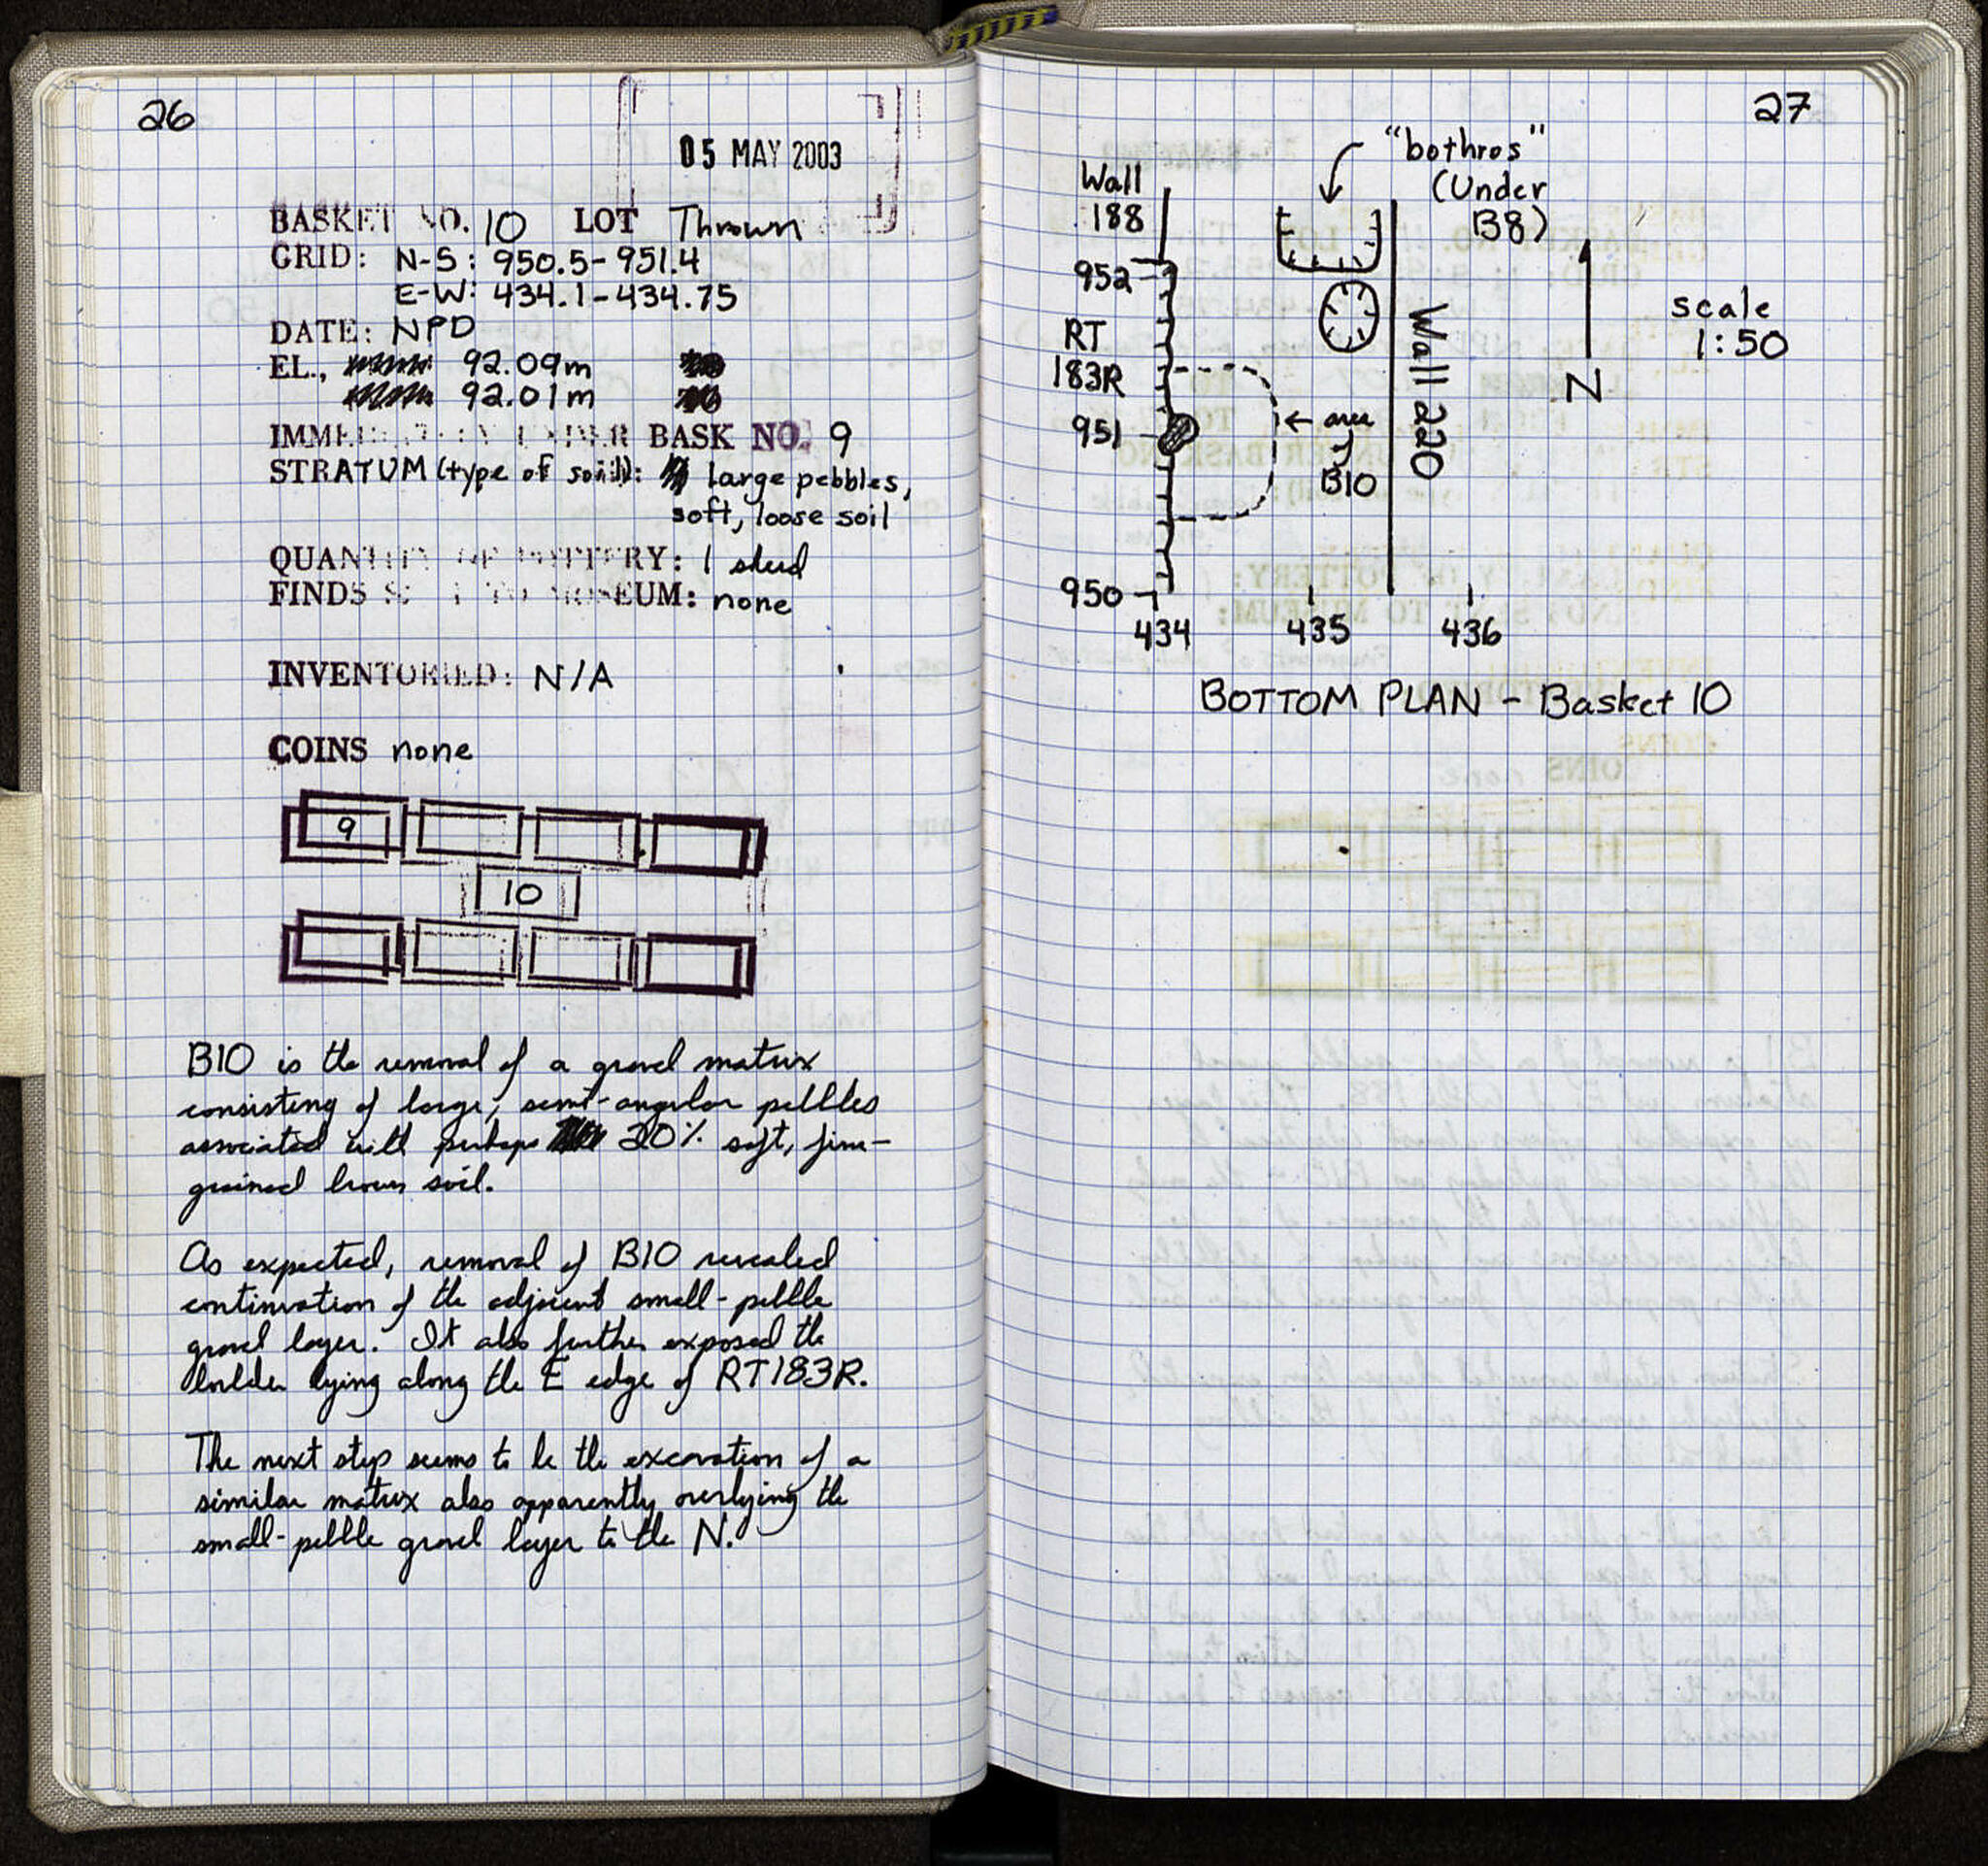 26
05 MAY 2003
BASKET NO. 10 LOT Thrown
GRID: N-S: 950.5-951.4
E-W: 434.1-434.75
DATE: NPD
EL., 92.09m
92.01m
IMMEDIATELY UNDER BASK NO. 9
STRATUM (type of soil): large pebbles,
soft, loose soil
QUANTITY OF POTTERY: 1 sherd
FINDS SENT TO MUSEUM: none
INVENTORIED: N/A
COINS none
9
10
B10 is the removal of a gravel matrix
consisting of large, semi-angular pebbles
associated with perhaps 20% soft, fine-
grained brown soil.
As expected, removal of B10 revealed
continuation of the adjacent small-pebble
gravel layer. It also further exposed the
boulder lying along the E edge of RT183R.
The next step seems to be the excavation of a
similar matrix also apparently overlying the
small-pebble gravel layer to the N.
27
"bothros"
(Under
B8)
Wall
188
952
RT
183R
951
950
434
435
436
← area
of
B10
Wall 220
N
scale
1:50
BOTTOM PLAN - Basket 10